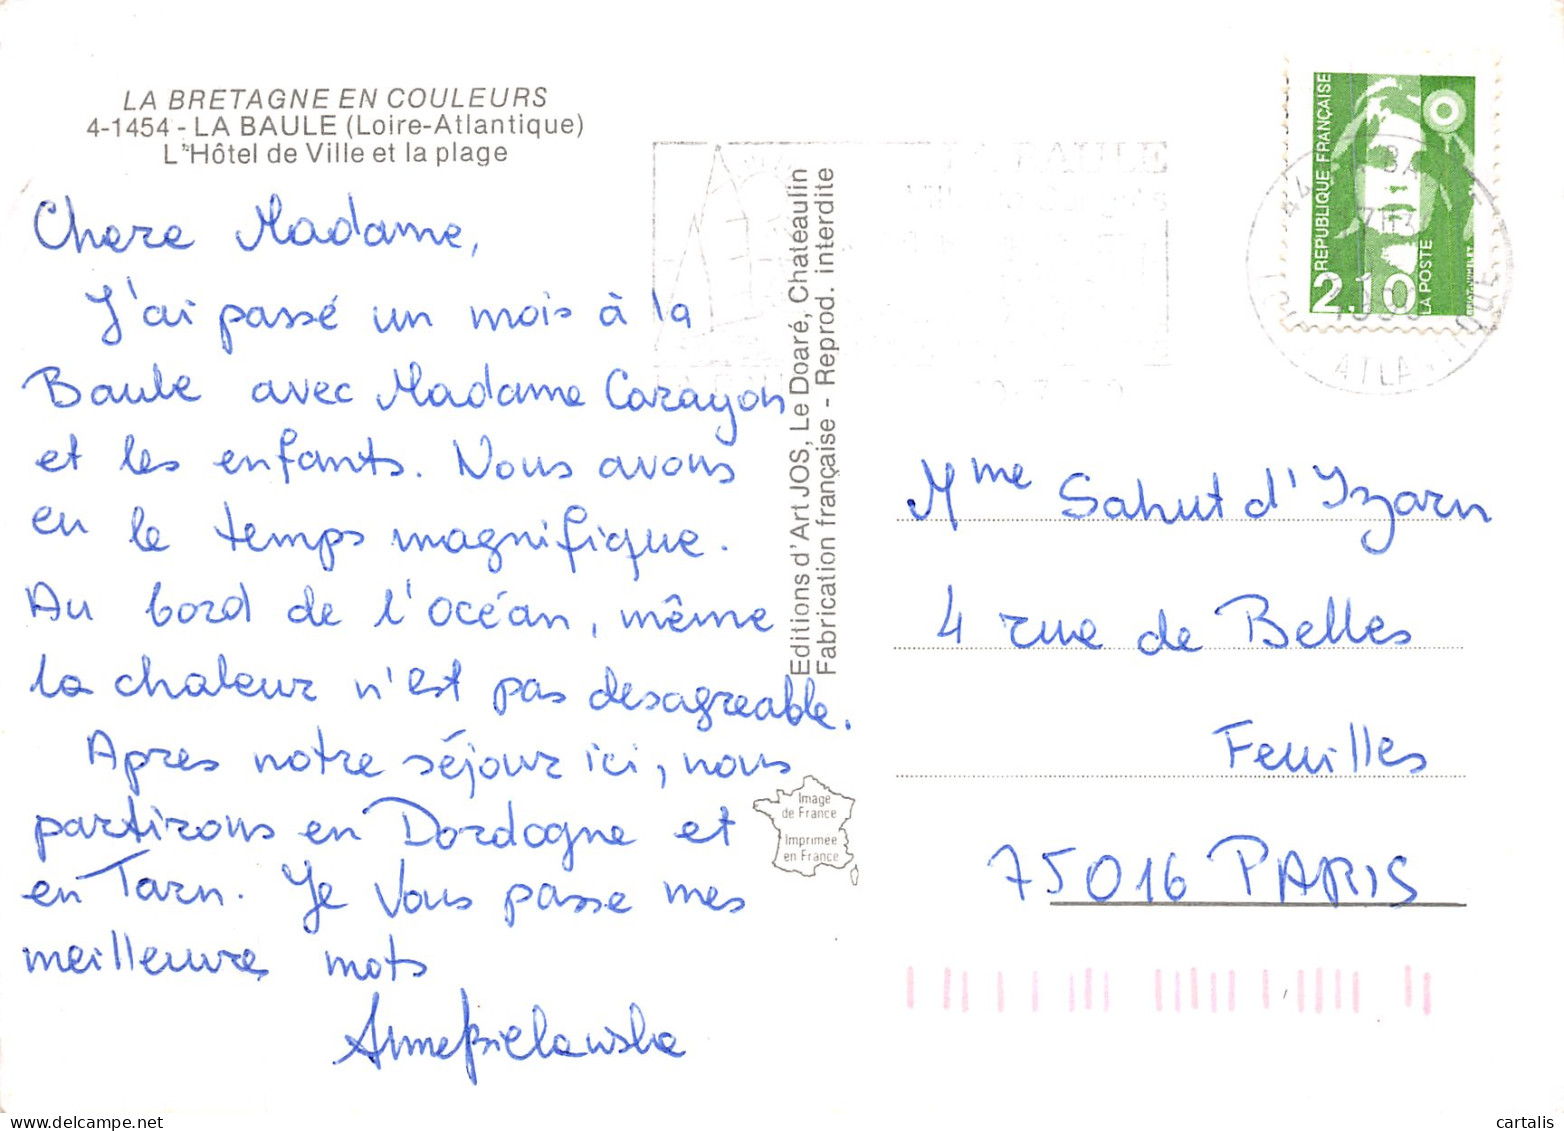 LA BRETAGNE EN COULEURS
4-1454 - LA BAULE (Loire-Atlantique)
L'Hôtel de Ville et la plage
Chere Madame,
J'ai passé un mois à la
Baule avec Madame Carayon
et les enfants. Nous avons
eu le temps magnifique.
Au bord de l'océan, même
la chaleur n'est pas desagreable.
Apres notre séjour ici, nous
partirons en Dordogne et
en Tarn. Je Vous passe mes
meilleures mots
Editions d'Art JOS, Le Doaré, Chateaulin
Fabrication française - Reprod. interdite
Image
de France
Imprimée
en France
LA BAULE
REPUBLIQUE FRANÇAISE
2,10
LA POSTE
Mme Sahut d'Izarn
4 rue de Belles
Feuilles
75016 PARIS
cartalis